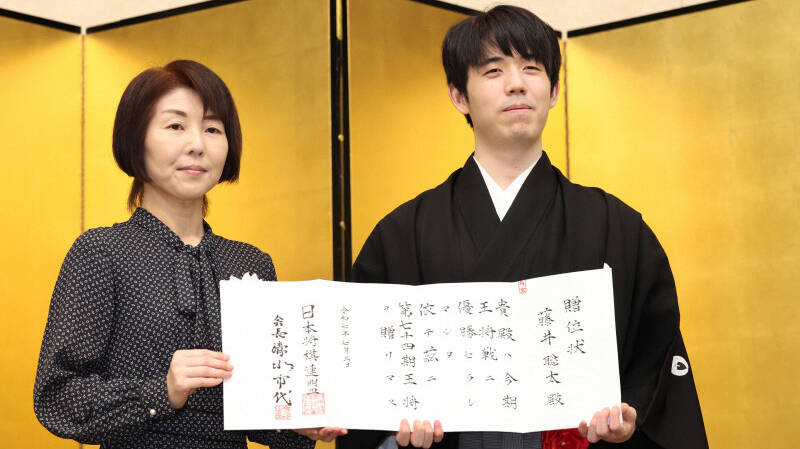 贈位状
藤井聡太殿
貴殿ハ今期
王将戦ニ
優勝セラレ
マシタ
依テ茲ニ
第七十四期王将
ヲ贈リマス
令和七年七月三日
日本将棋連盟
会長 清水市代